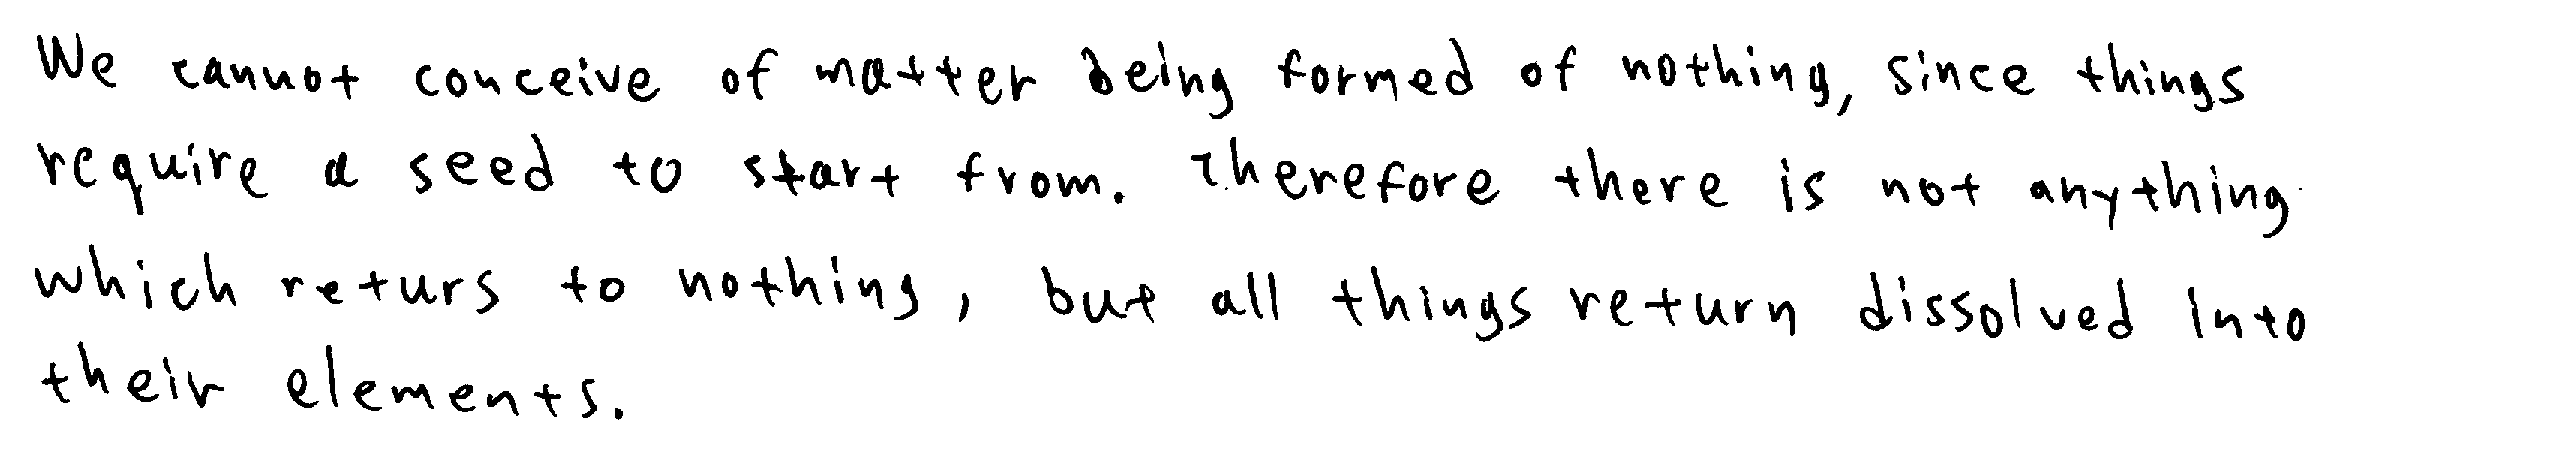 We cannot conceive of matter being formed of nothing, since things
require a seed to start from. Therefore there is not anything
which returs to nothing, but all things return dissolved into
their elements.